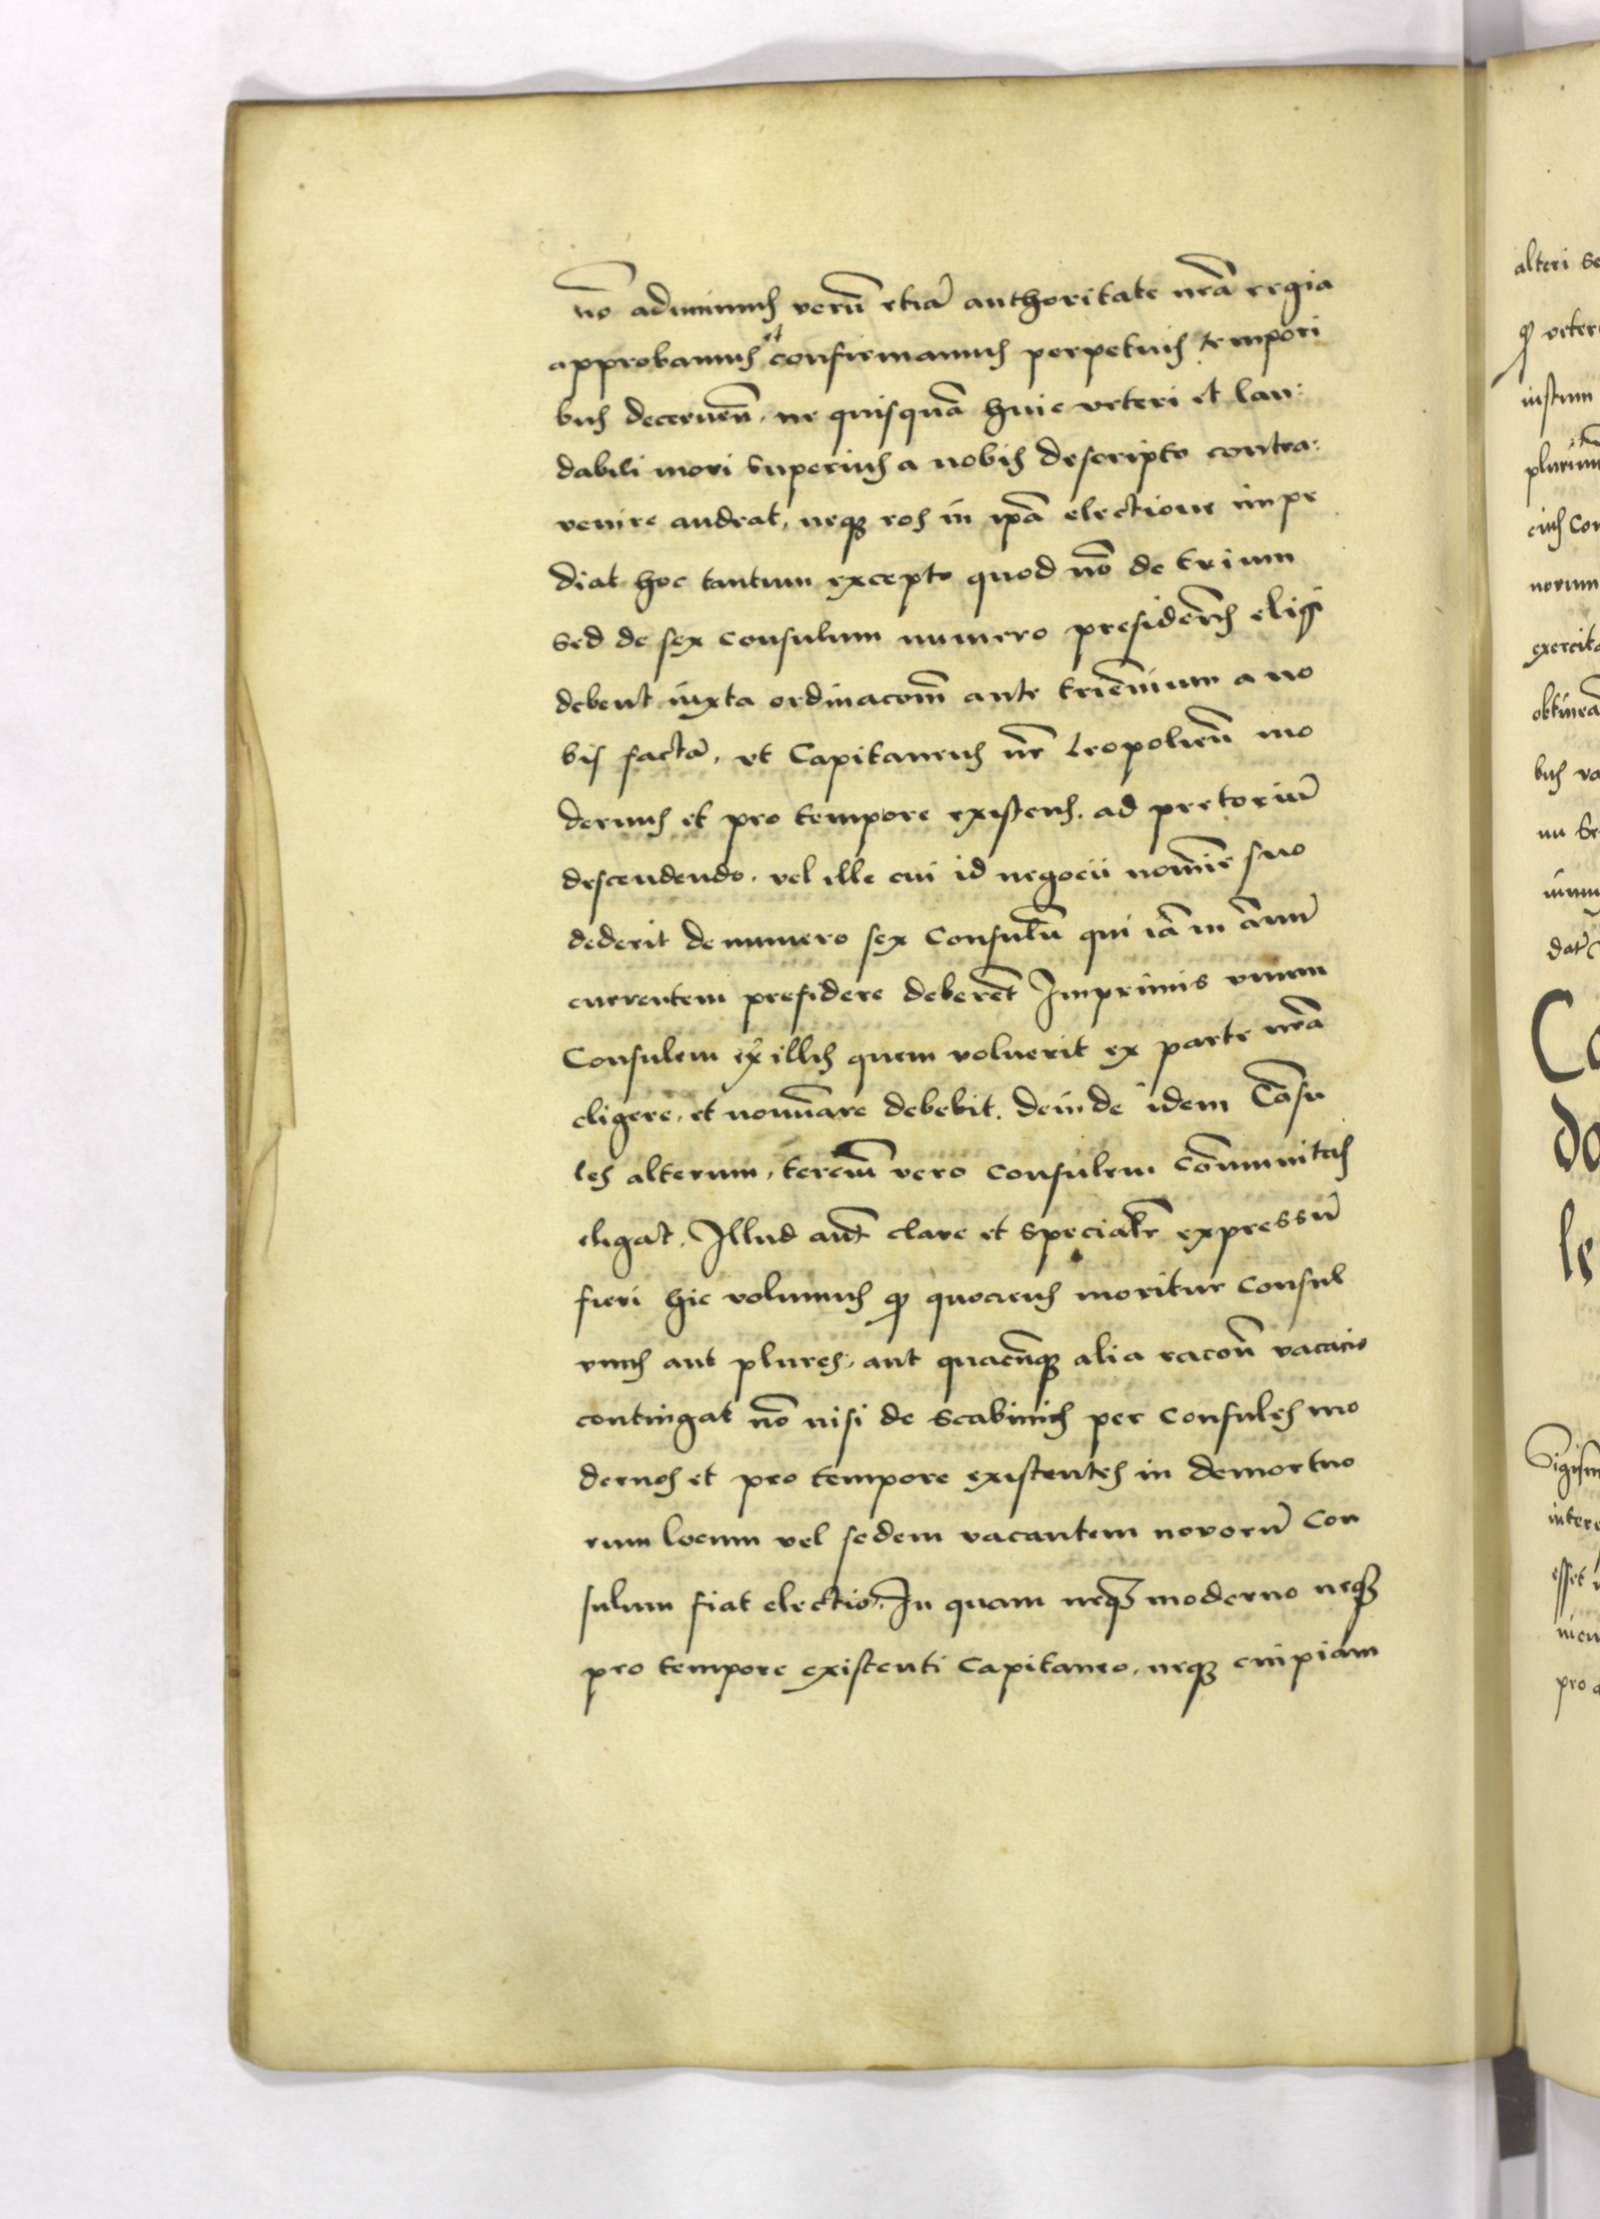 nō adimimus verū etiā authoritate nrā regia
approbamus et confirmamus perpetuis tempori
bus decernen̄. ne quisquā huic veteri et lau:
dabili mori superius a nobis descripto contra:
venire audeat, neqꝫ eos in ipā electione impe
diat hoc tantum excepto quod nō de trium
sed de sex consulum numero presidētes eligi
debent iuxta ordinacōm ante triēnium a no
bis factā, vt Capitaneus nr̄ Leopolien̄ mo
dernus et pro tempore existens. ad pretoriū
descendendo. vel ille cui id negocii nomīe suo
dederit de numero sex Consulū qui iā in ānū
currentem presidere deberēt Imprimis vnum
Consulem ex illis quem voluerit ex parte nrā
eligere, et nomīare debebit. deinde idem Cōsu
les alterum, terciū vero consulem cōmunitas
eligat. Illud aut̄ clare et specialr̄ expressū
fieri hic volumus ꝙ quociens moritur consul
vnus aut plures, aut quacūqꝫ alia racōn vacacio
contingat nō nisi de scabinis per consules mo
dernos et pro tempore existentes in demortuo
rum locum vel sedem vacantem novorū con
sulum fiat electio. In quam neqꝫ moderno neqꝫ
pro tempore existenti capitaneo, neqꝫ cuipiam
alteri
ꝙ veter
iustum
plurium
eius Con
norum
exercit
obtineā
bus va
nu
dat
Ca
do
le
Sigism
inter
esset
pro a